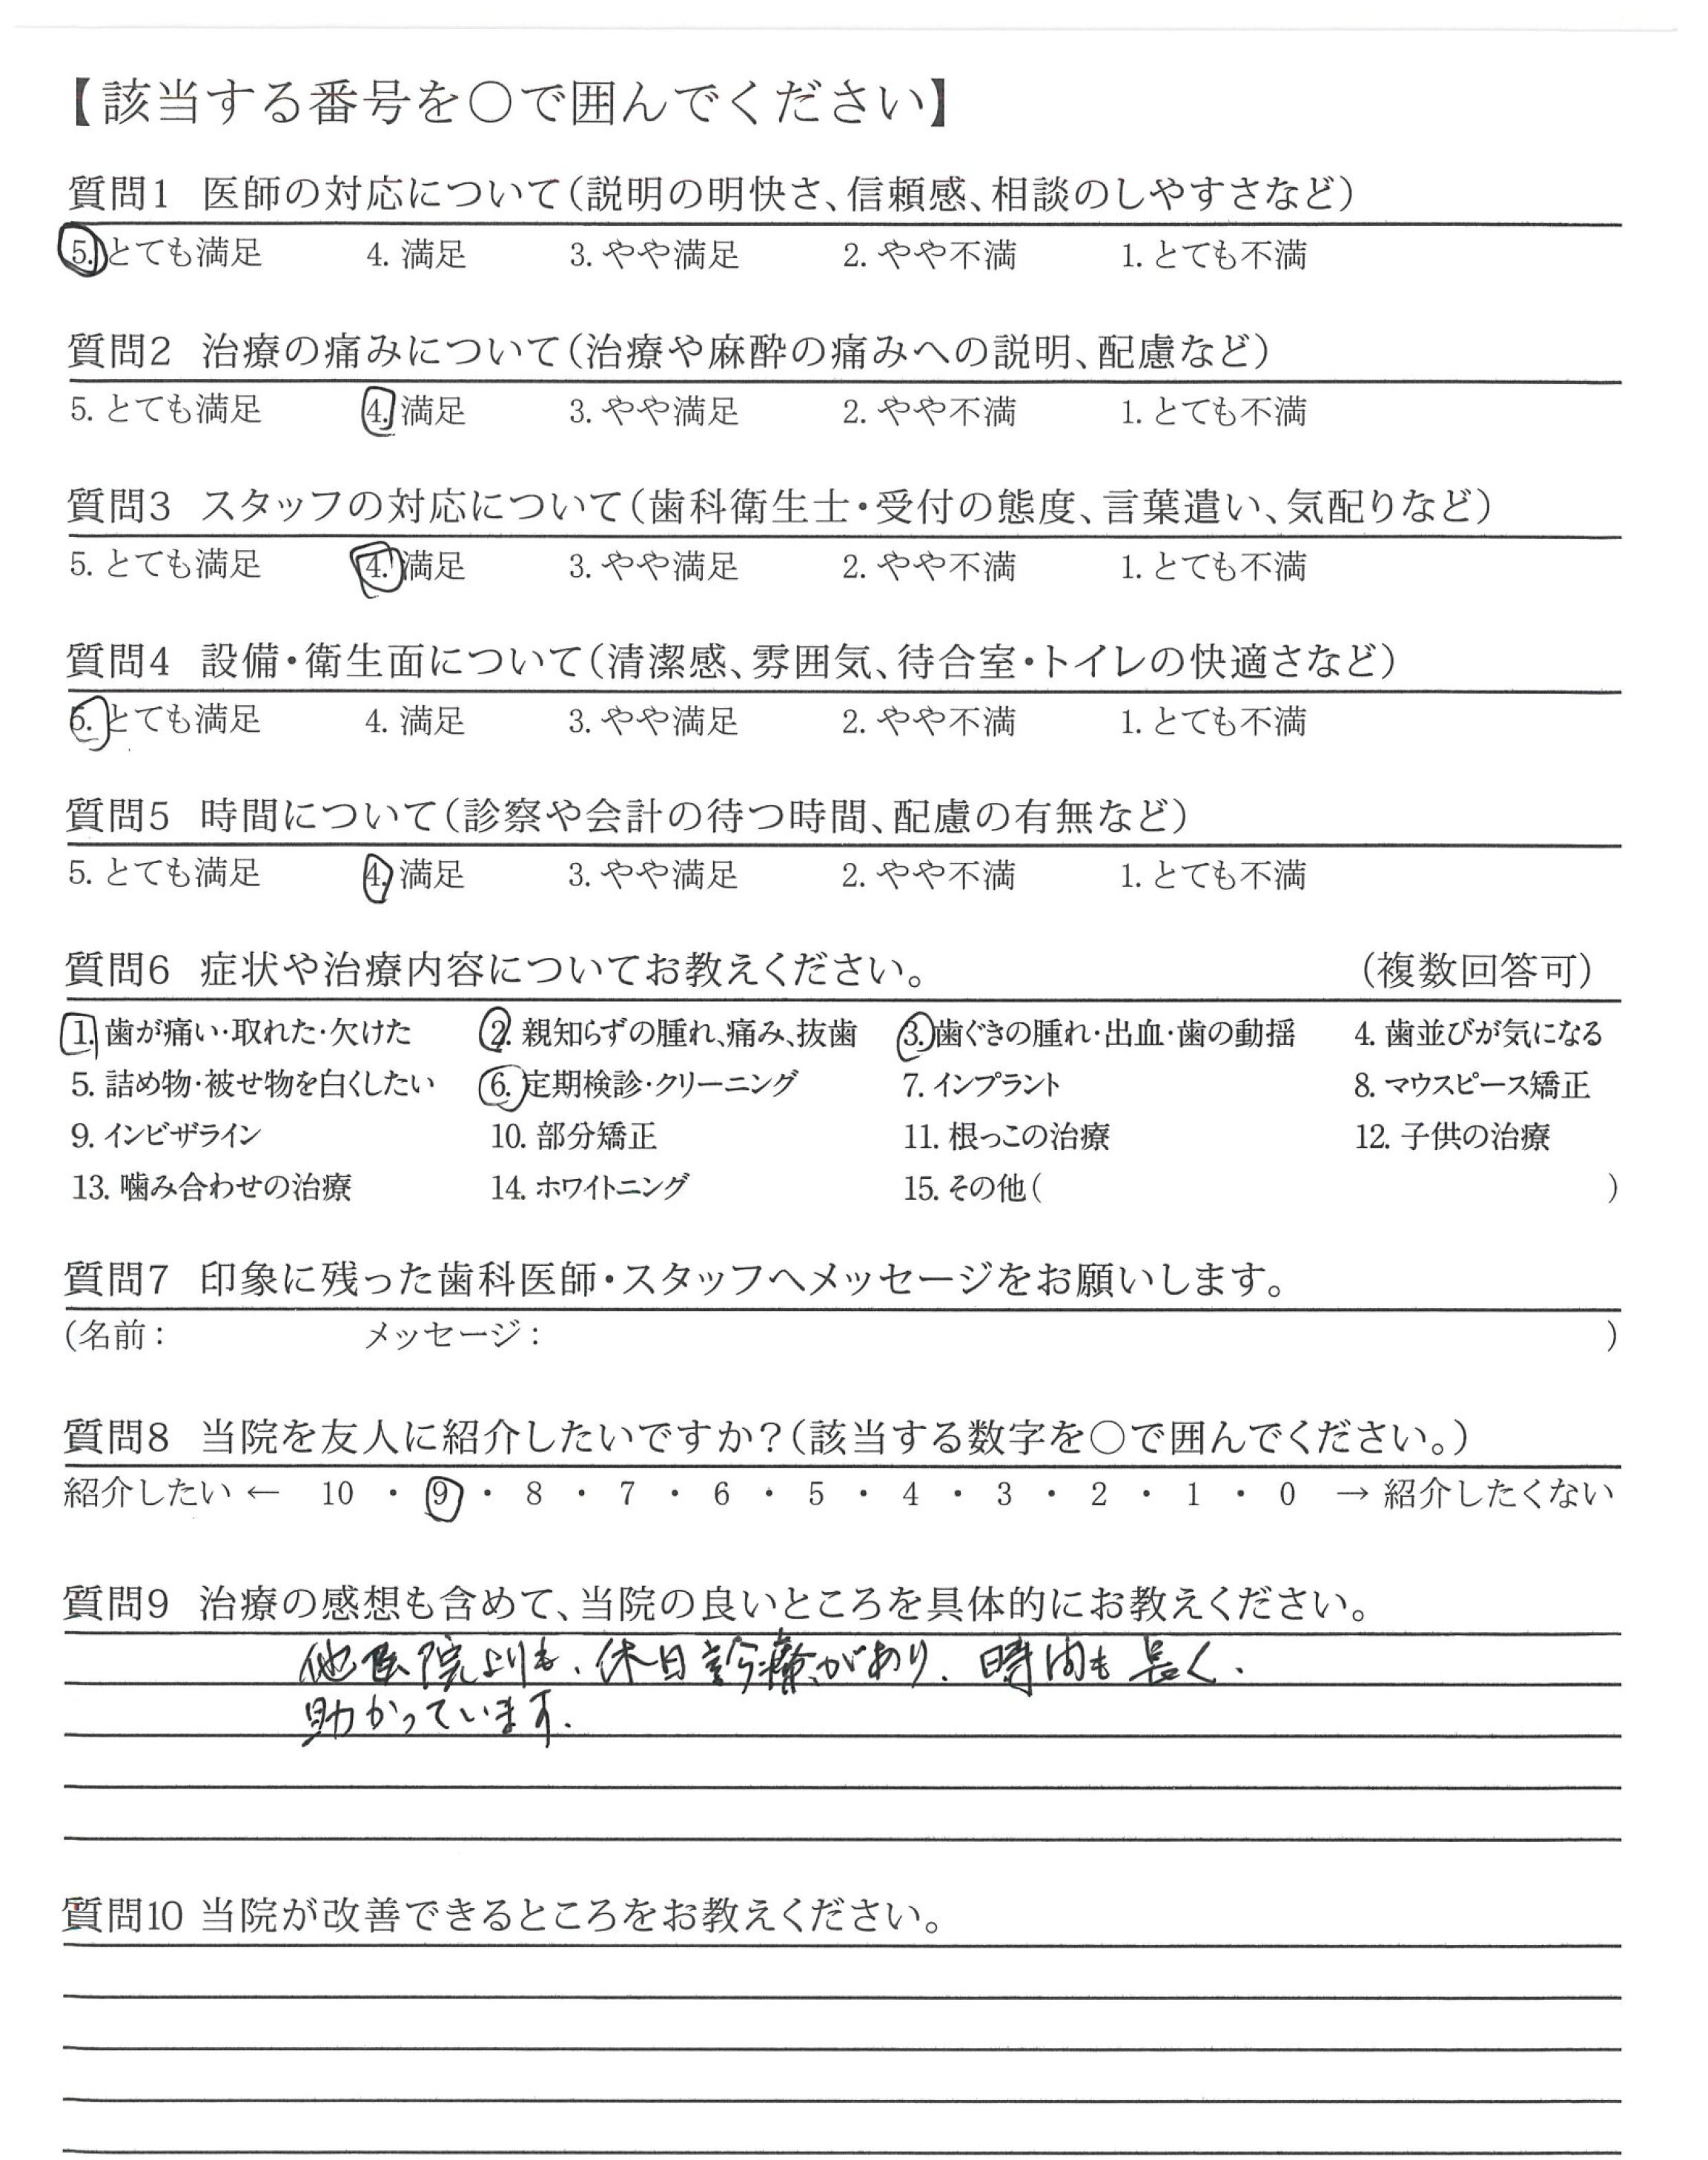 【該当する番号を○で囲んでください】
質問1 医師の対応について(説明の明快さ、信頼感、相談のしやすさなど)
5. とても満足 4. 満足 3. やや満足 2. やや不満 1. とても不満
質問2 治療の痛みについて(治療や麻酔の痛みへの説明、配慮など)
5. とても満足 4. 満足 3. やや満足 2. やや不満 1. とても不満
質問3 スタッフの対応について(歯科衛生士・受付の態度、言葉遣い、気配りなど)
5. とても満足 4. 満足 3. やや満足 2. やや不満 1. とても不満
質問4 設備・衛生面について(清潔感、雰囲気、待合室・トイレの快適さなど)
5. とても満足 4. 満足 3. やや満足 2. やや不満 1. とても不満
質問5 時間について(診察や会計の待つ時間、配慮の有無など)
5. とても満足 4. 満足 3. やや満足 2. やや不満 1. とても不満
質問6 症状や治療内容についてお教えください。 (複数回答可)
1. 歯が痛い・取れた・欠けた 2. 親知らずの腫れ、痛み、抜歯 3. 歯ぐきの腫れ・出血・歯の動揺 4. 歯並びが気になる
5. 詰め物・被せ物を白くしたい 6. 定期検診・クリーニング 7. インプラント 8. マウスピース矯正
9. インビザライン 10. 部分矯正 11. 根っこの治療 12. 子供の治療
13. 噛み合わせの治療 14. ホワイトニング 15. その他( )
質問7 印象に残った歯科医師・スタッフへメッセージをお願いします。
(名前: メッセージ: )
質問8 当院を友人に紹介したいですか?(該当する数字を○で囲んでください。)
紹介したい ← 10 ・ 9 ・ 8 ・ 7 ・ 6 ・ 5 ・ 4 ・ 3 ・ 2 ・ 1 ・ 0 → 紹介したくない
質問9 治療の感想も含めて、当院の良いところを具体的にお教えください。
他医院よりも、休日診療があり、時間も長く、
助かっています。
質問10 当院が改善できるところをお教えください。